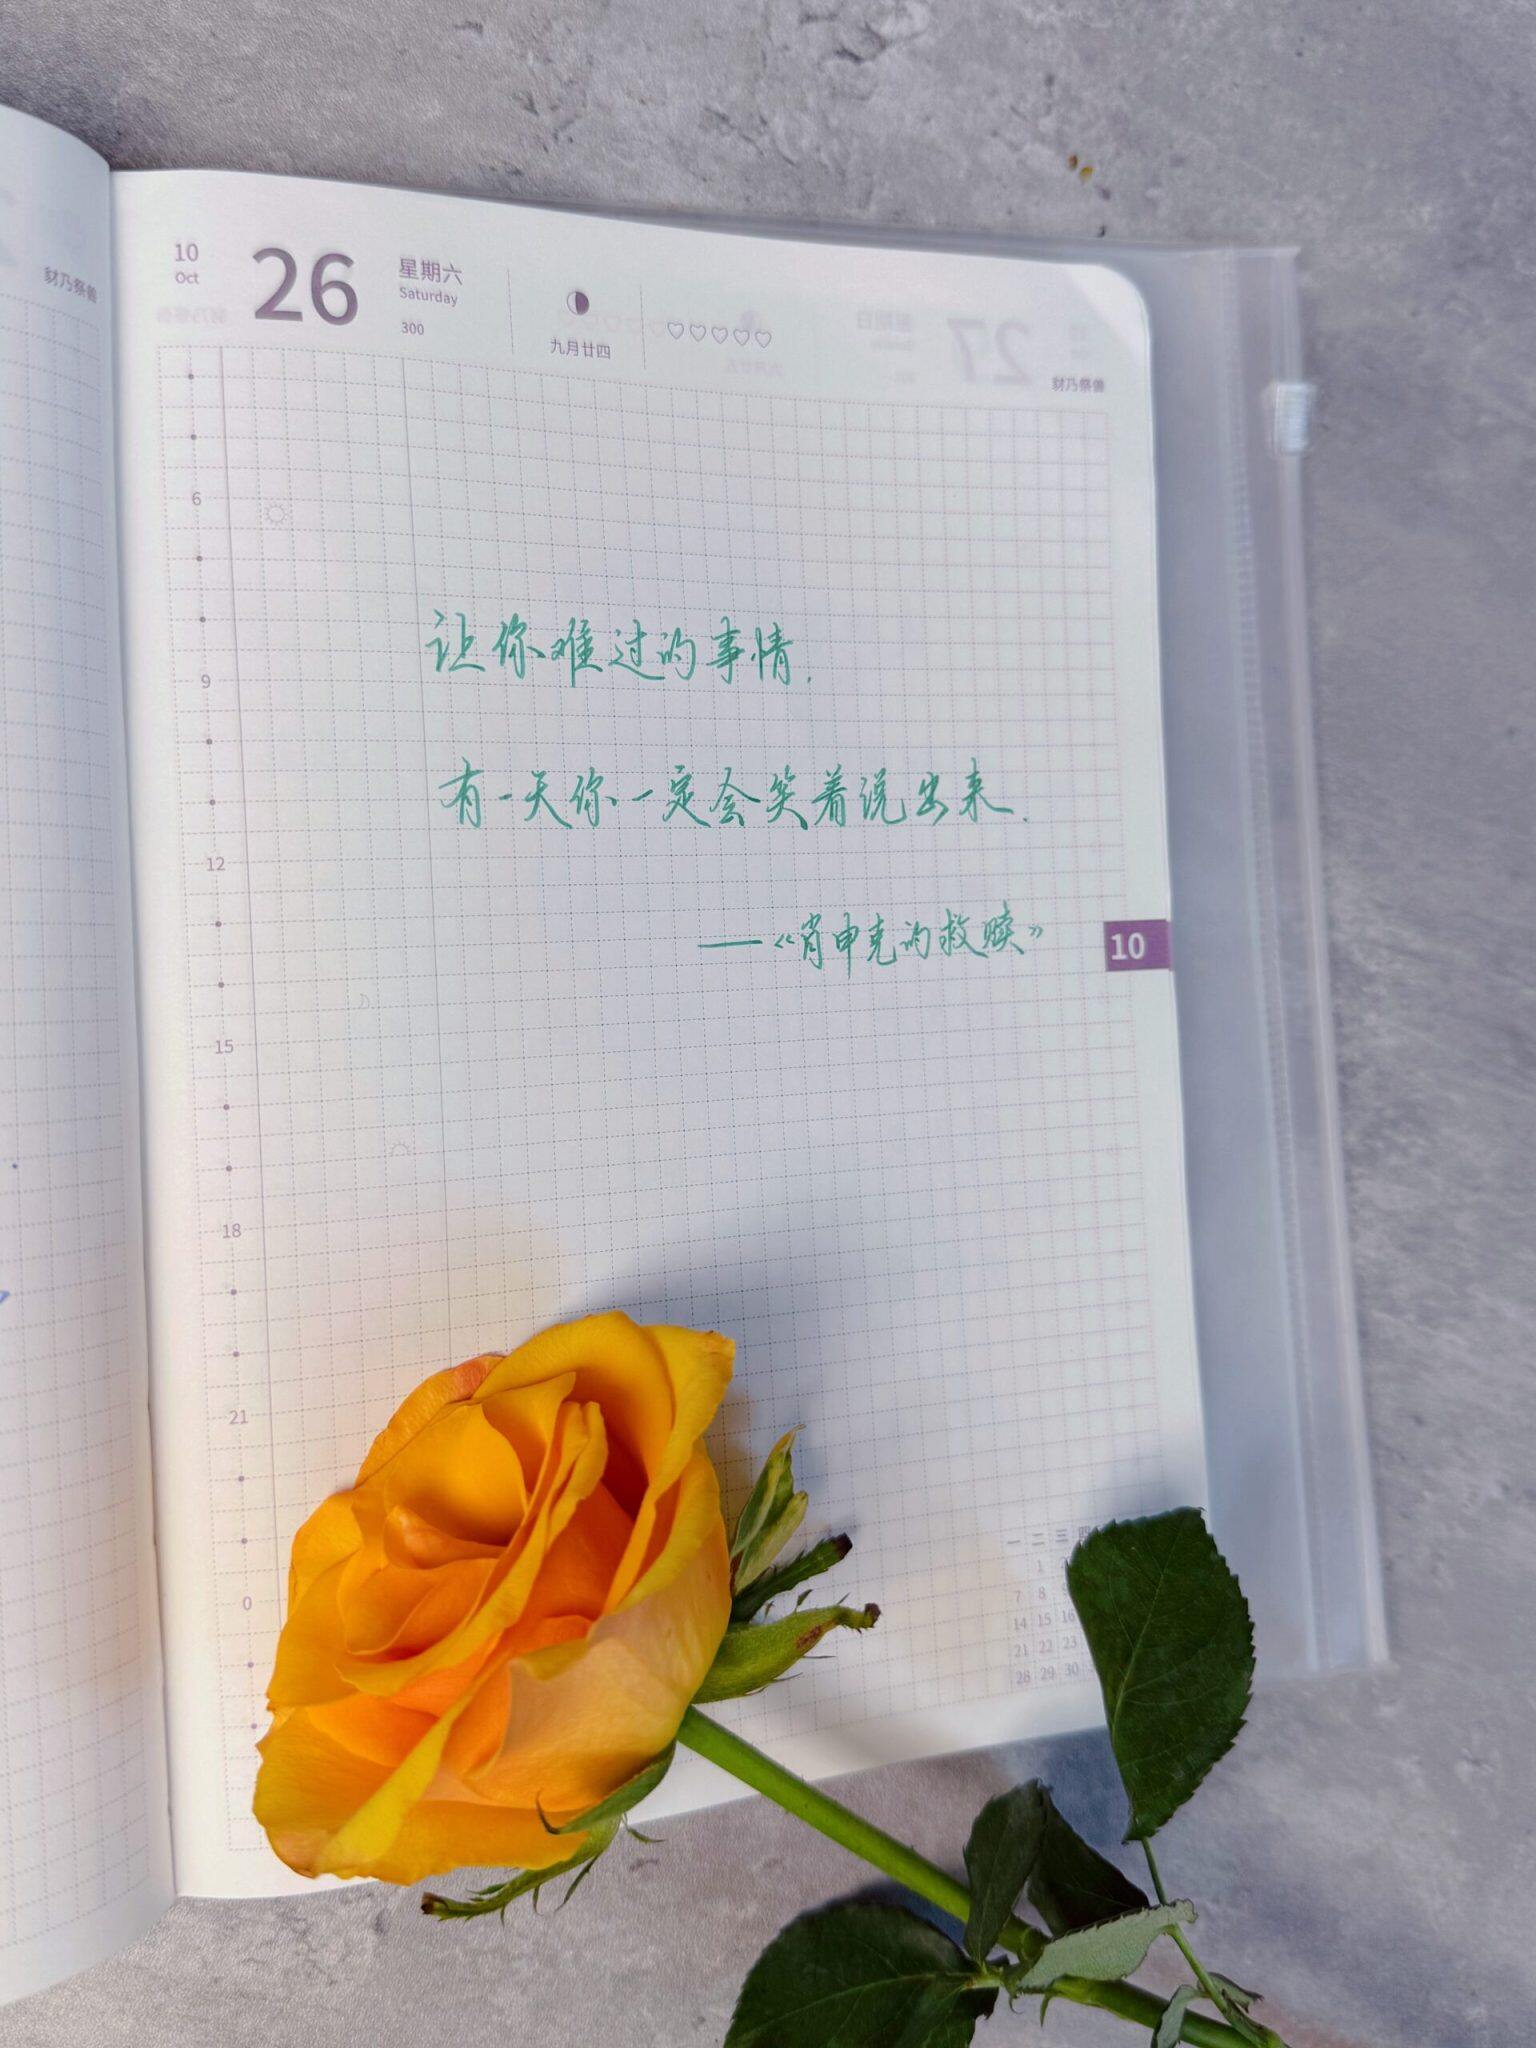 豺乃祭兽
10
Oct
26
星期六
Saturday
300
九月廿四
豺乃祭兽
6
让你难过的事情.
9
有一天你一定会笑着说出来.
12
——《肖申克的救赎》
10
15
18
21
0
一 二 三 四
1 2
7 8 9
14 15 16
21 22 23
28 29 30